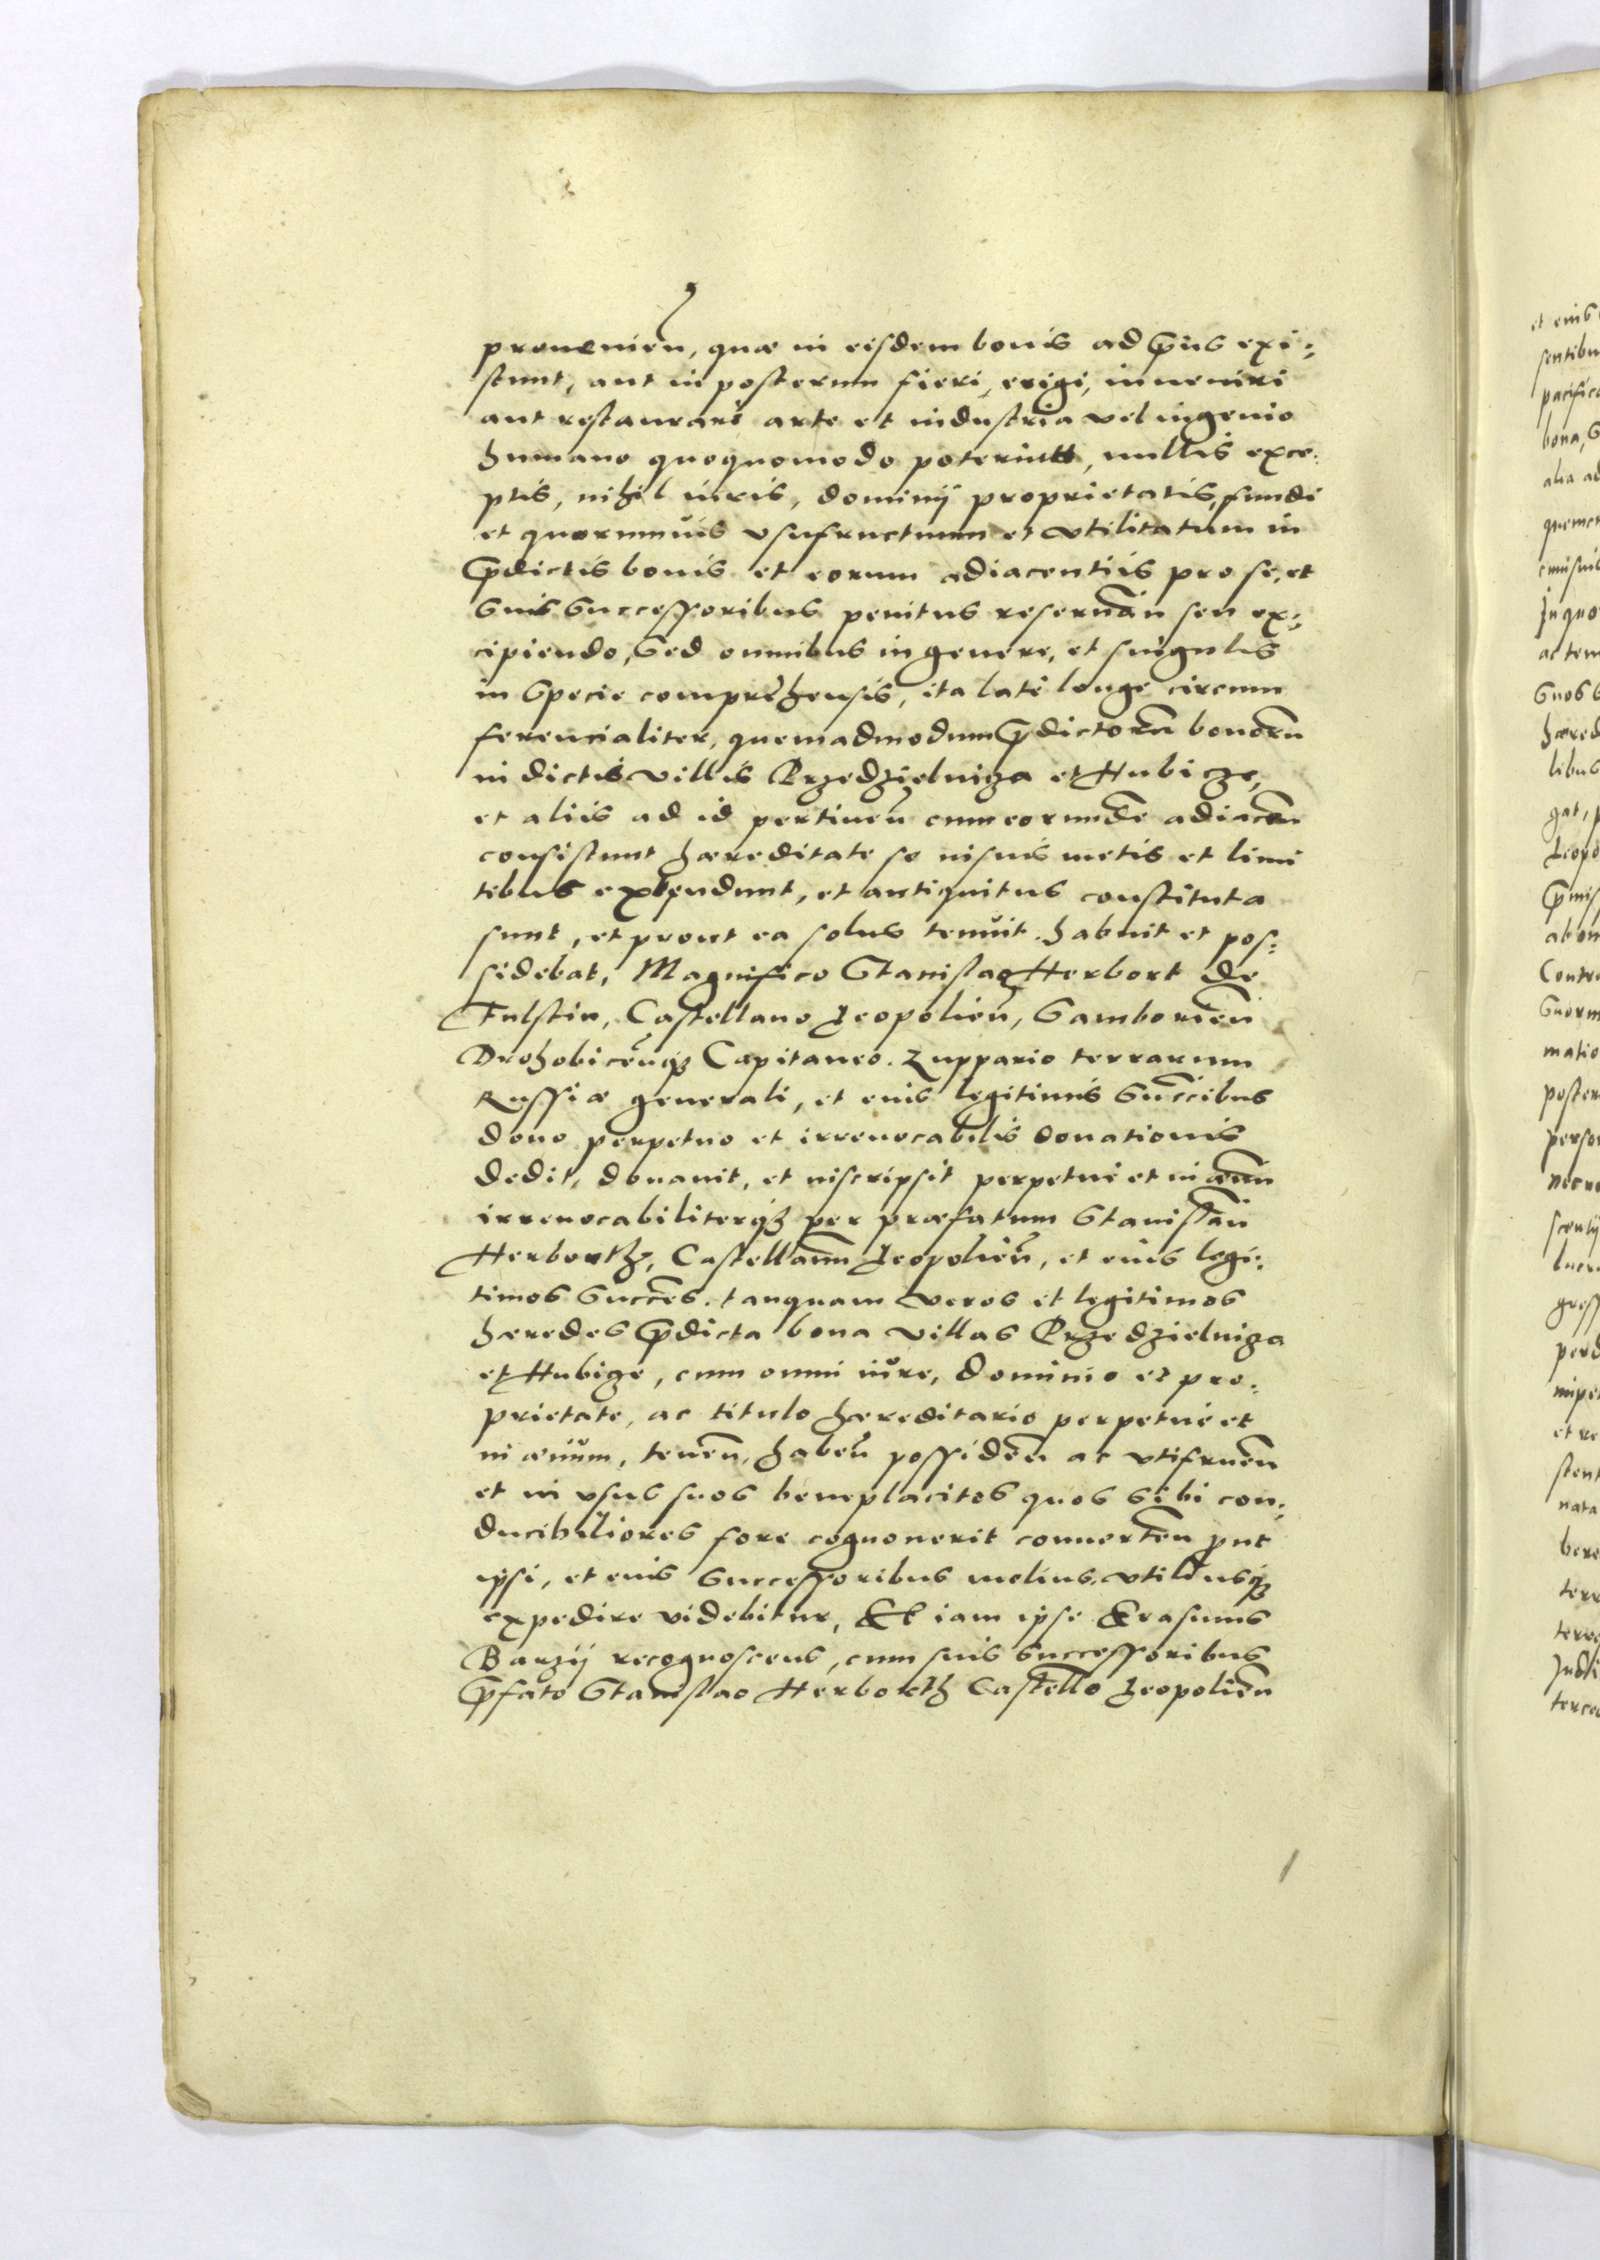 prouenien, quæ in eisdem bonis ad prns exi-
stunt, aut in posterum fieri, erigi, inueniri
aut restaurari arte et industria vel ingenio
humano quoquomodo poterint, nullis exce-
ptis, nihil iuris, dominij proprietatis, fundi
et quorumuis vsufructuum et vtilitatum in
prdictis bonis et eorum adiacentiis pro se, et
suis successoribus penitus reseruan seu ex-
cipiendo, sed omnibus in genere, et singulis
in specie comprehensis, ita late longe circum
ferencialiter, quemadmodum prdictoru bonoru
in dictis villis Przedzielniza et Hubicze,
et aliis ad id pertinen cum eorunde adiacen
consistunt hæreditate se in suis metis et limi
tibus extendunt, et antiquitus constituta
sunt, et prout ea solus tenuit. habuit et pos-
sidebat, Magnifico Stanislao Herbort de
Fulstin, Castellano Leopolien, Samborien
Drohobicenqz Capitaneo. Zuppario terrarum
Russiæ generali, et eius legitimis succibus
dono perpetuo et irreuocabilis donationis
dedit, donauit, et inscripsit perpetue et in æuu
irreuocabiliterqz per præfatum Stanislau
Herborth, Castellanu Leopolien, et eius legi-
timos succes. tanquam veros et legitimos
hæredes prdicta bona villas Przedzielniza
et Hubize, cum omni iure, dominio et pro-
prietate, ac titulo hæreditario perpetue et
in æuum, tenen, haben possiden ac vtifruen
et in vsus suos beneplacitos quos sibi con-
ducibiliores fore cognouerit conuerten prut
ipsi, et eius successoribus melius, vtiliusqz
expedire videbitur, Et iam ipse Erasmus
Barzij recognoscens, cum suis successoribus
prfato Stanislao Herborth Castello Leopolien